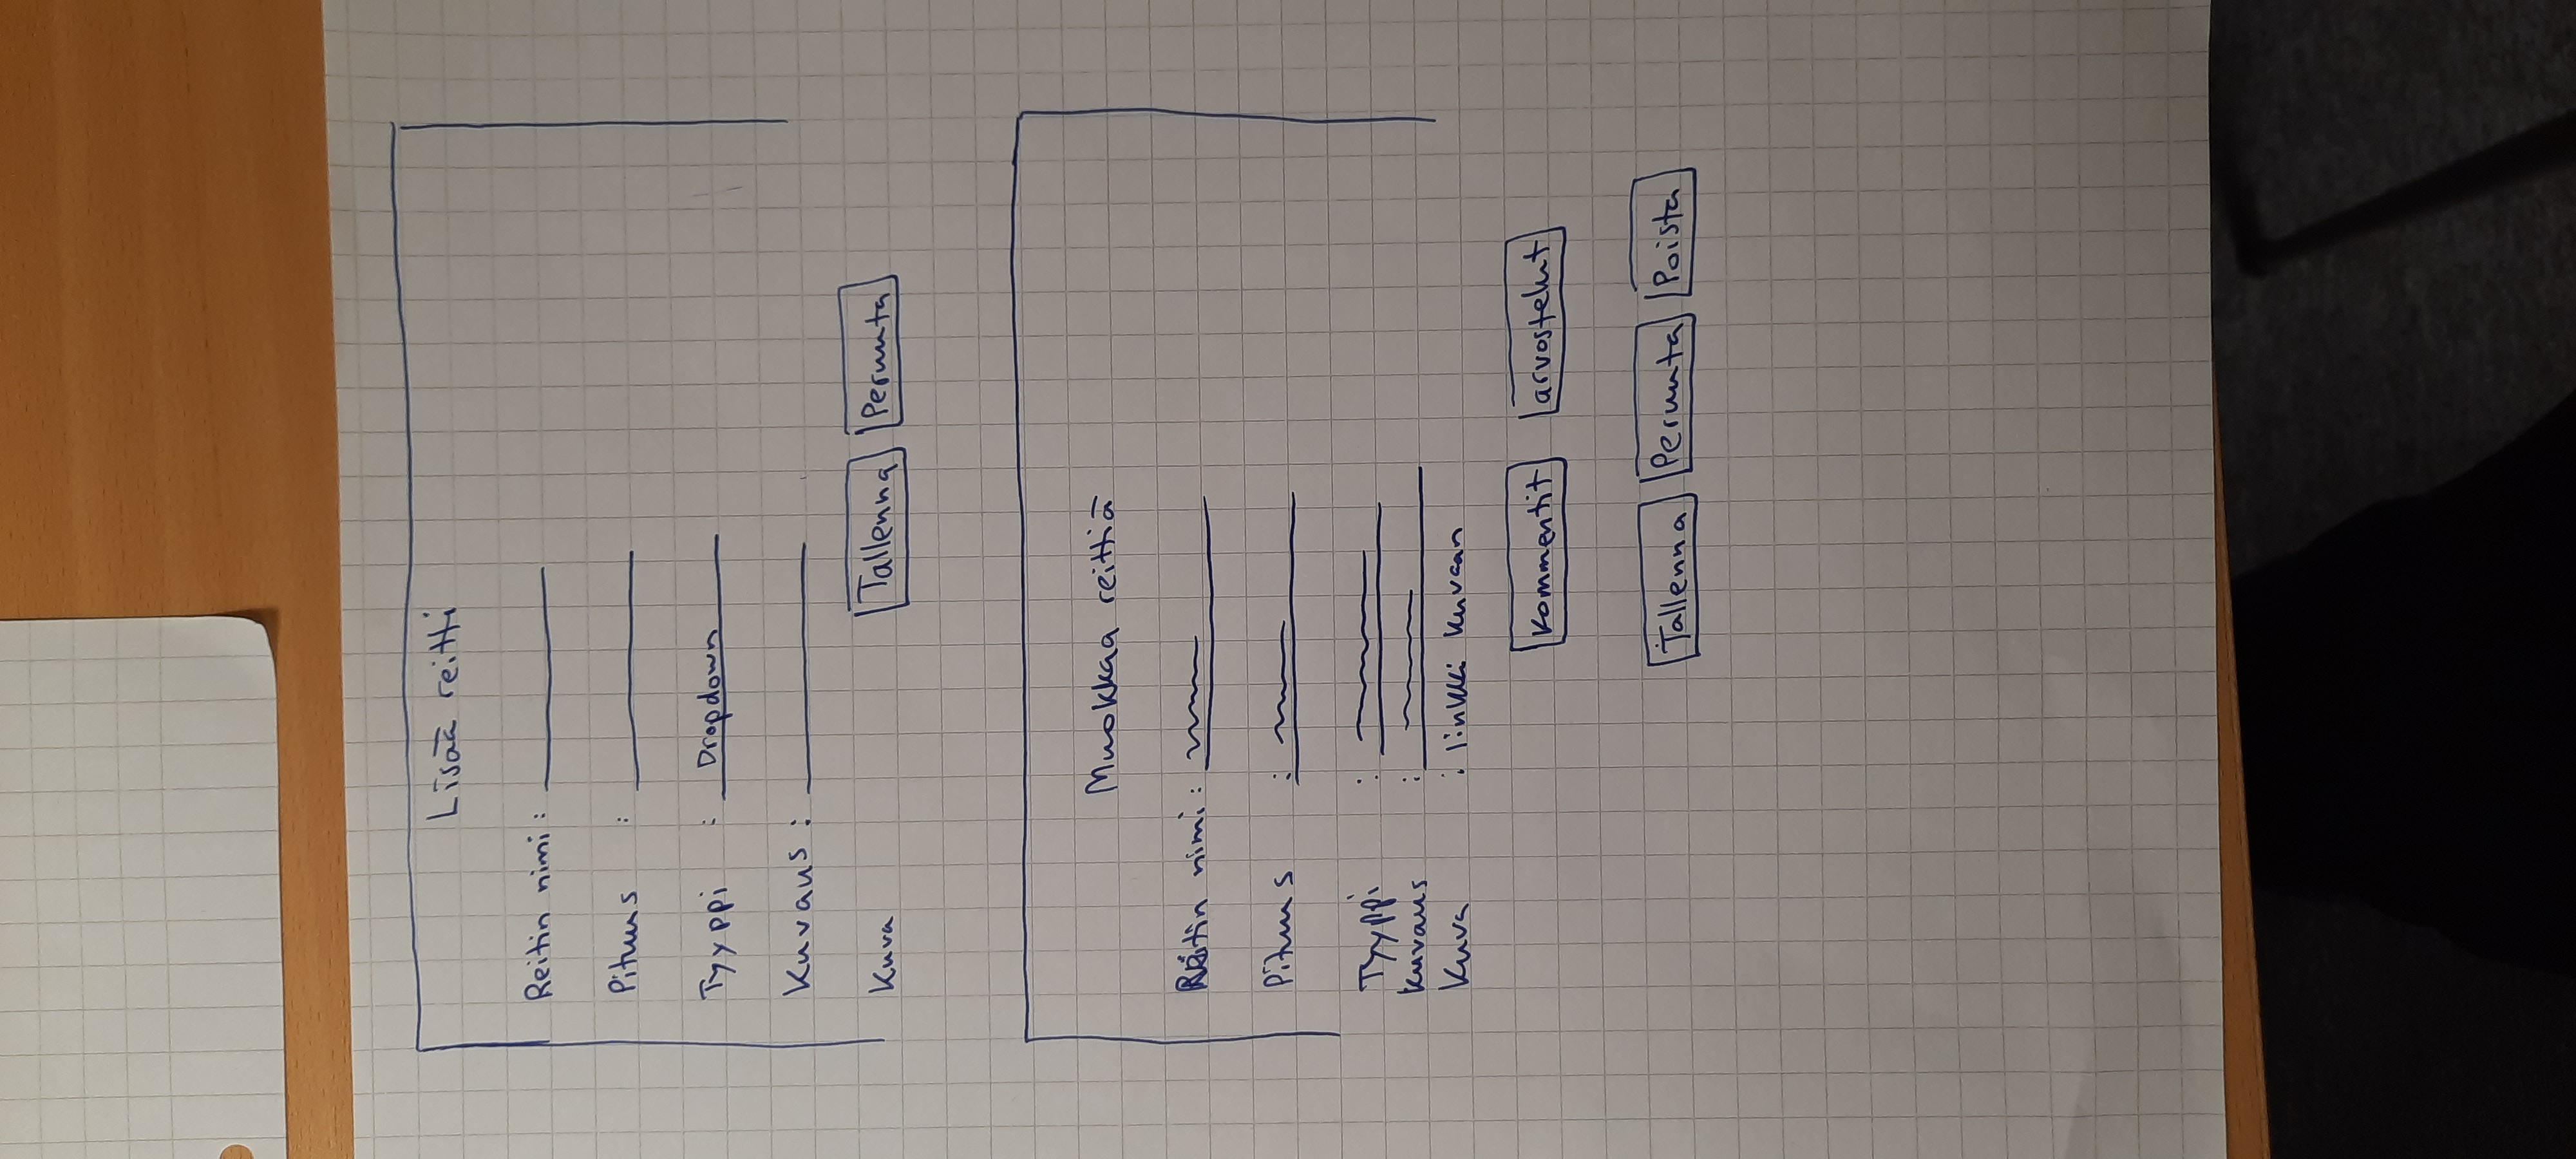 Lisää reitti
Reitin nimi :
Pituus :
Tyyppi : Dropdown
Kuvaus :
Kuva Tallenna Peruuta
Muokkaa reittiä
Reitin nimi :
Pituus :
Tyyppi :
Kuvaus :
Kuva : linkki kuvaan
Kommentit arvostelut
Tallenna Peruuta Poista